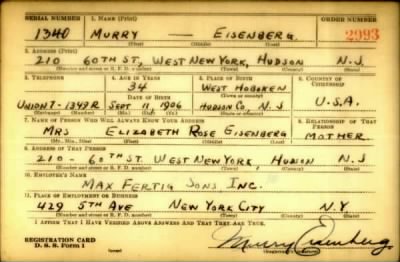 SERIAL NUMBER 1. NAME (Print)
1340 MURRY — EISENBERG. 2993
(First) (Middle) (Last)
2. ADDRESS (Print)
210 60TH ST, WEST NEW YORK, HUDSON N.J.
(Number and street or R. F. D. number) (Town) (County) (State)
3. TELEPHONE 4. AGE IN YEARS 5. PLACE OF BIRTH 6. COUNTRY OF CITIZENSHIP
34 WEST HOBOKEN
DATE OF BIRTH (Town or county)
UNION 7-1349R SEPT 11, 1906 HUDSON CO, N.J U.S.A.
(Exchange) (Number) (Mo.) (Day) (Yr.) (State or country)
7. NAME OF PERSON WHO WILL ALWAYS KNOW YOUR ADDRESS 8. RELATIONSHIP OF THAT PERSON
MRS ELIZABETH ROSE EISENBERG MOTHER
(Mr., Mrs., Miss) (First) (Middle) (Last)
9. ADDRESS OF THAT PERSON
210 - 60TH ST. WEST NEW YORK, HUDSON N.J
(Number and street or R. F. D. number) (Town) (County) (State)
10. EMPLOYER'S NAME
MAX FERTIG SONS INC.
11. PLACE OF EMPLOYMENT OR BUSINESS
429 5TH AVE NEW YORK CITY N.Y.
(Number and street or R. F. D. number) (Town) (County) (State)
I AFFIRM THAT I HAVE VERIFIED ABOVE ANSWERS AND THAT THEY ARE TRUE.
REGISTRATION CARD
D. S. S. Form 1
Murry Eisenberg